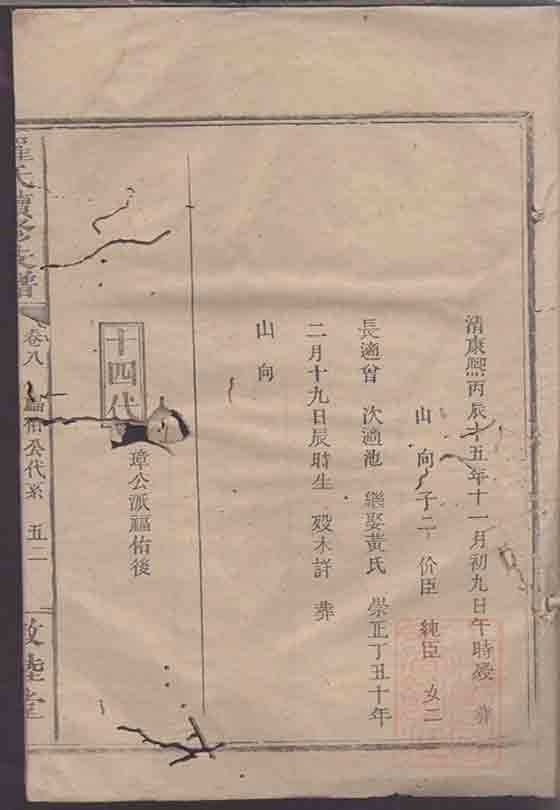 清康熙丙辰十五年十一月初九日午時歿 葬
山 向 子二 价臣 純臣 女二
長適曾 次適池 繼娶黃氏 崇正丁丑十年
二月十九日辰時生 歿未詳 葬
山 向
十四代 璋公派福佑後
羅氏續修支譜 卷八 福佑公代系 五二 敦睦堂